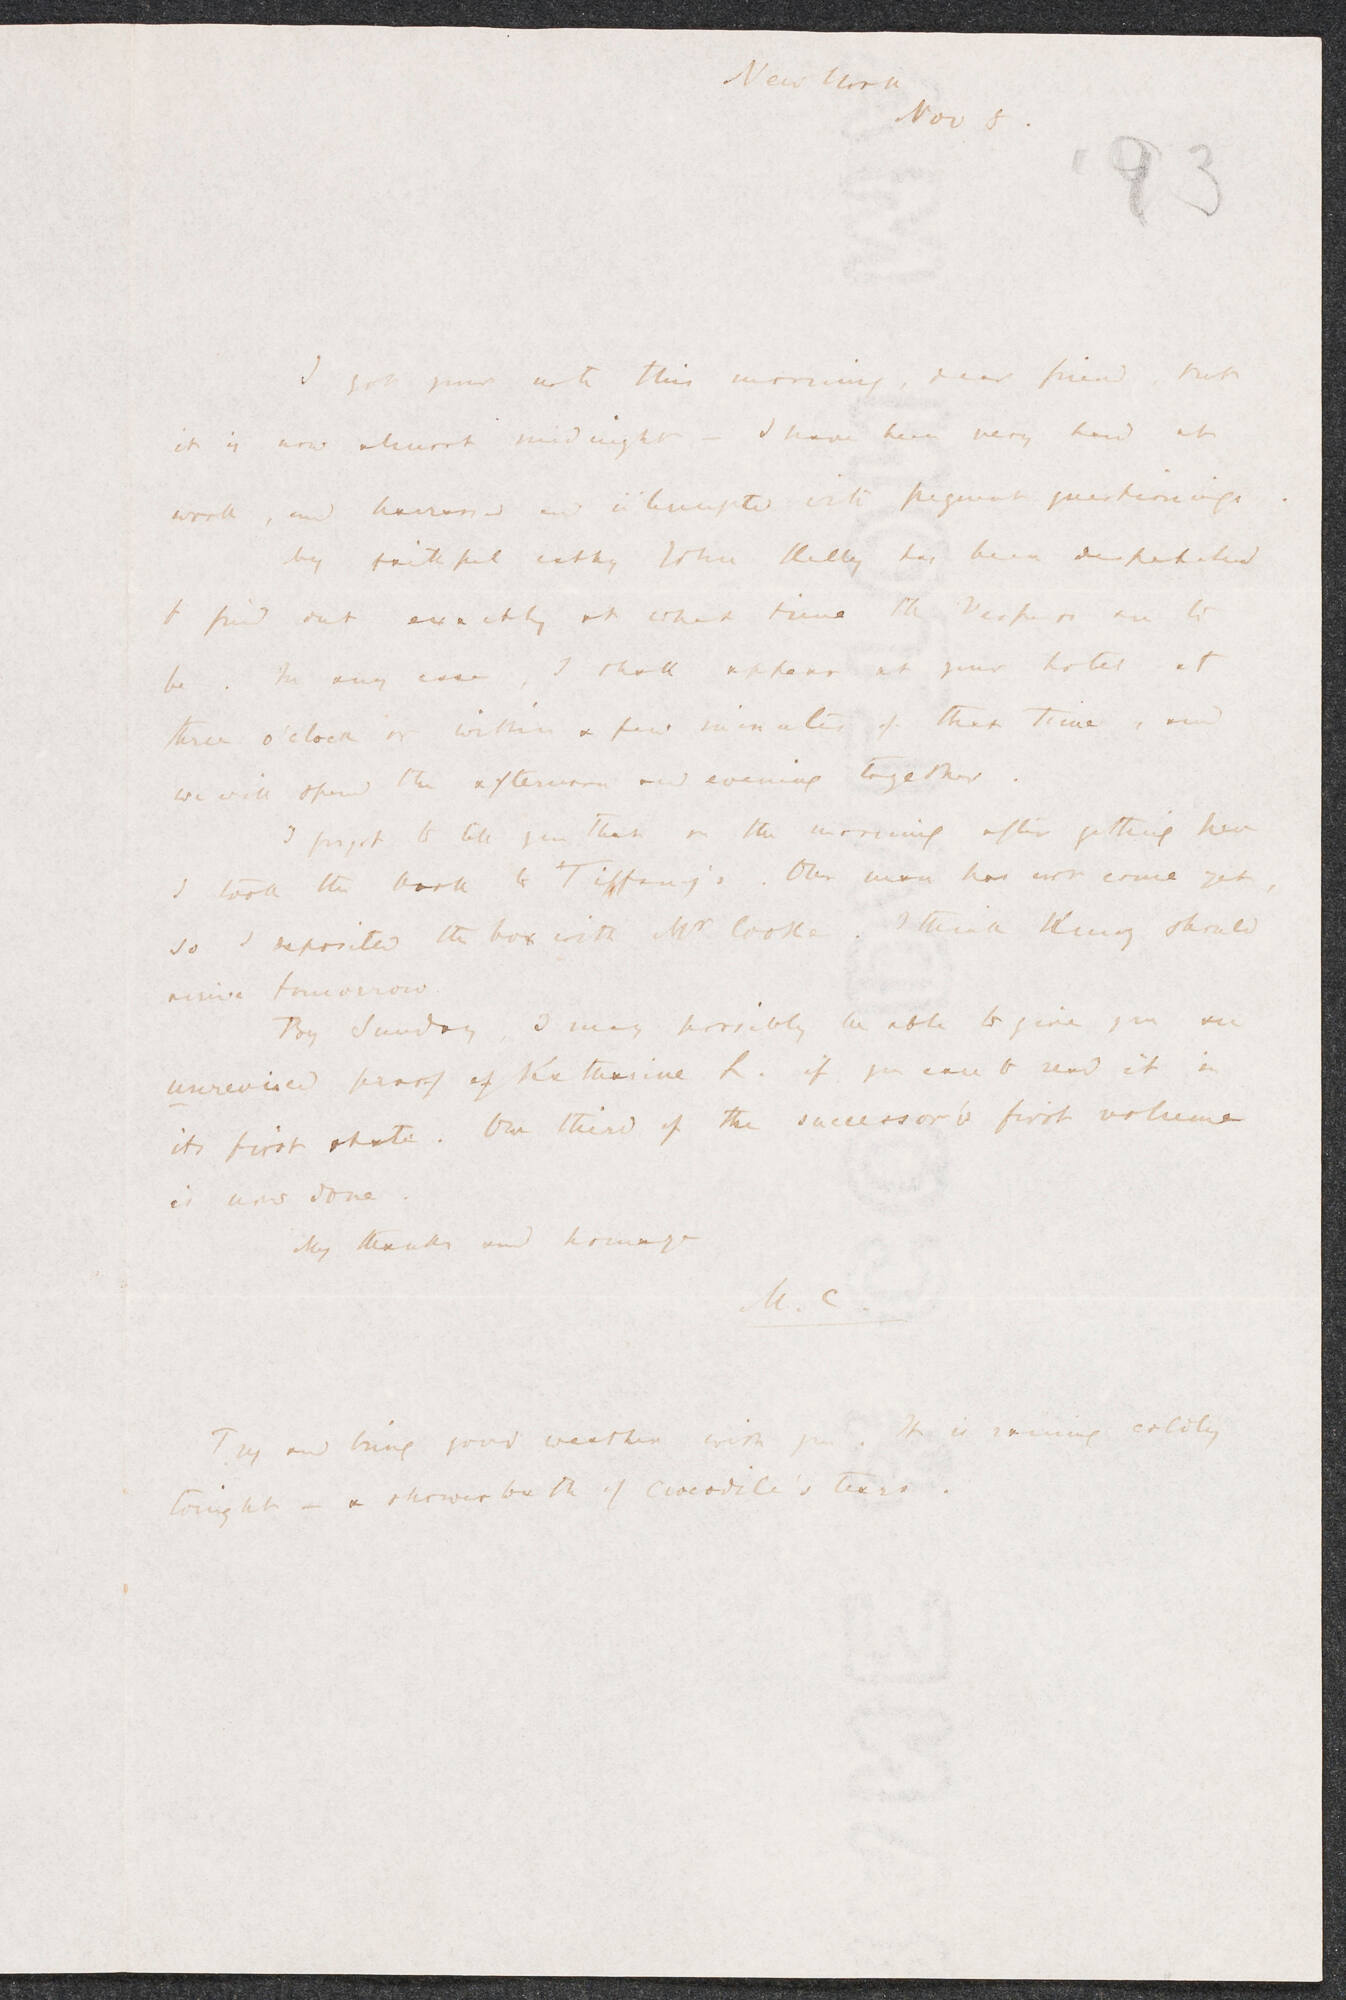 New York
Nov 8.
'93
I got your note this morning, dear friend, but
it is now almost midnight – I have been very hard at
work, and harassed and interrupted with frequent questionings.
My faithful John Kelly has been despatched
to find out exactly at what time the Vespers are to
be. In any case, I shall appear at your hotel at
three o'clock or within a few minutes of that time, and
we will spend the afternoon and evening together.
I forgot to tell you that on the morning after getting here
I took the book to Tiffany's. Our man has not come yet,
so I deposited the box with Mr Cooke. I think should
arrive tomorrow.
By Sunday, I may possibly be able to give you an
unrevised proof of Katharine L. if you care to read it in
its first state. One third of the successor's first volume
is now done.
My thanks and homage
M. C.
Try and bring good weather with you. It is raining coldly
tonight – a shower bath of crocodile's tears.